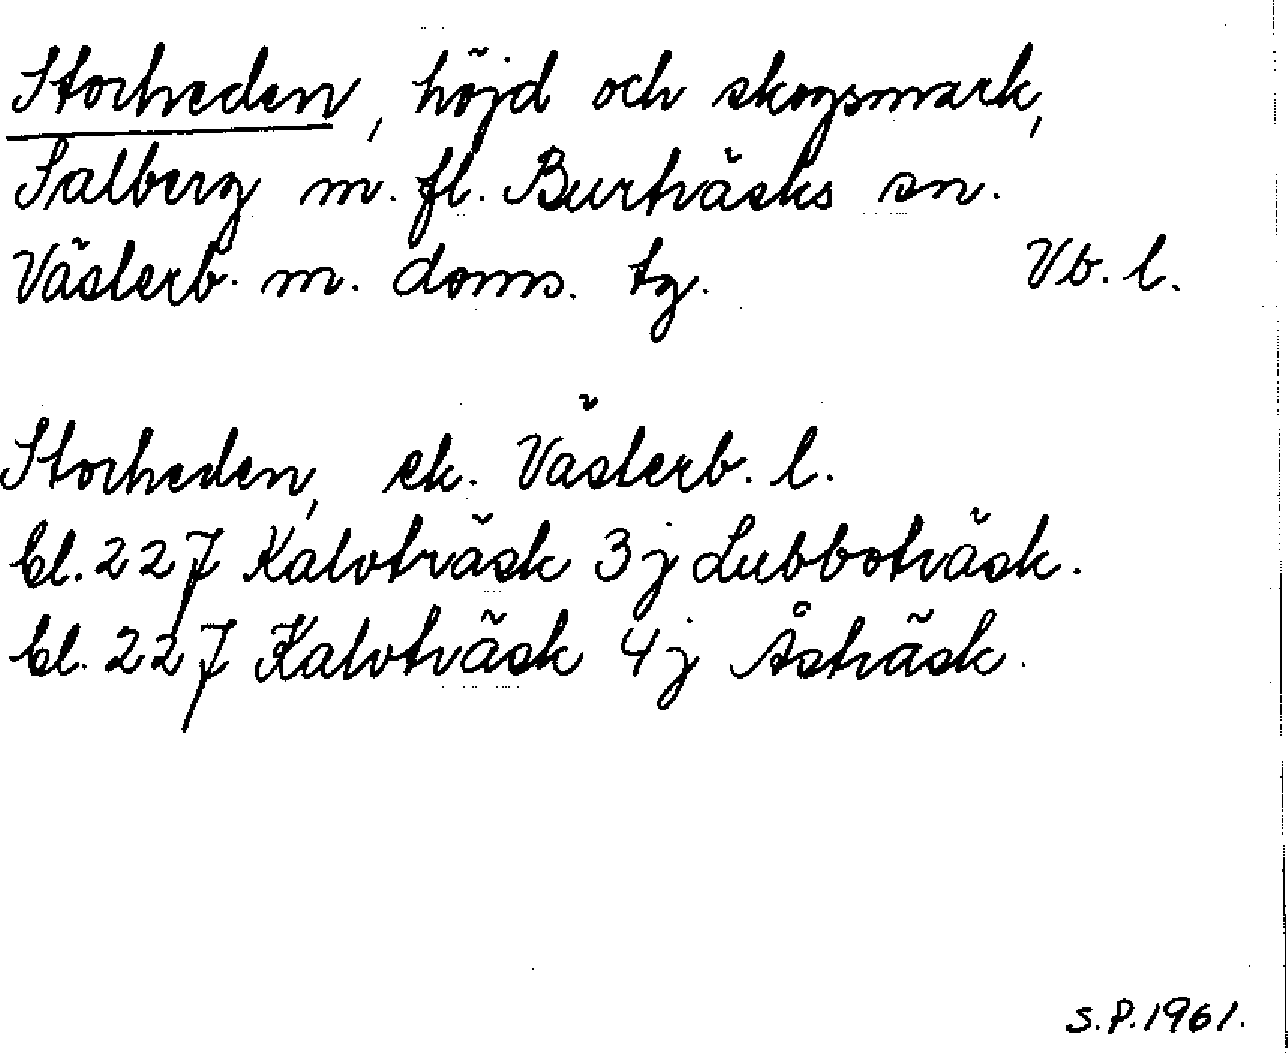 Storheden, höjd och skogsmark,
Salberg m. fl. Burträsks sn.
Västerb. m. doms. tg. Vb. l.
Storheden, ek. Västerb. l.
bl. 227 Kalvträsk 3j Lubboträsk.
bl. 227 Kalvträsk 4j Åsträsk.
S.P.1961.